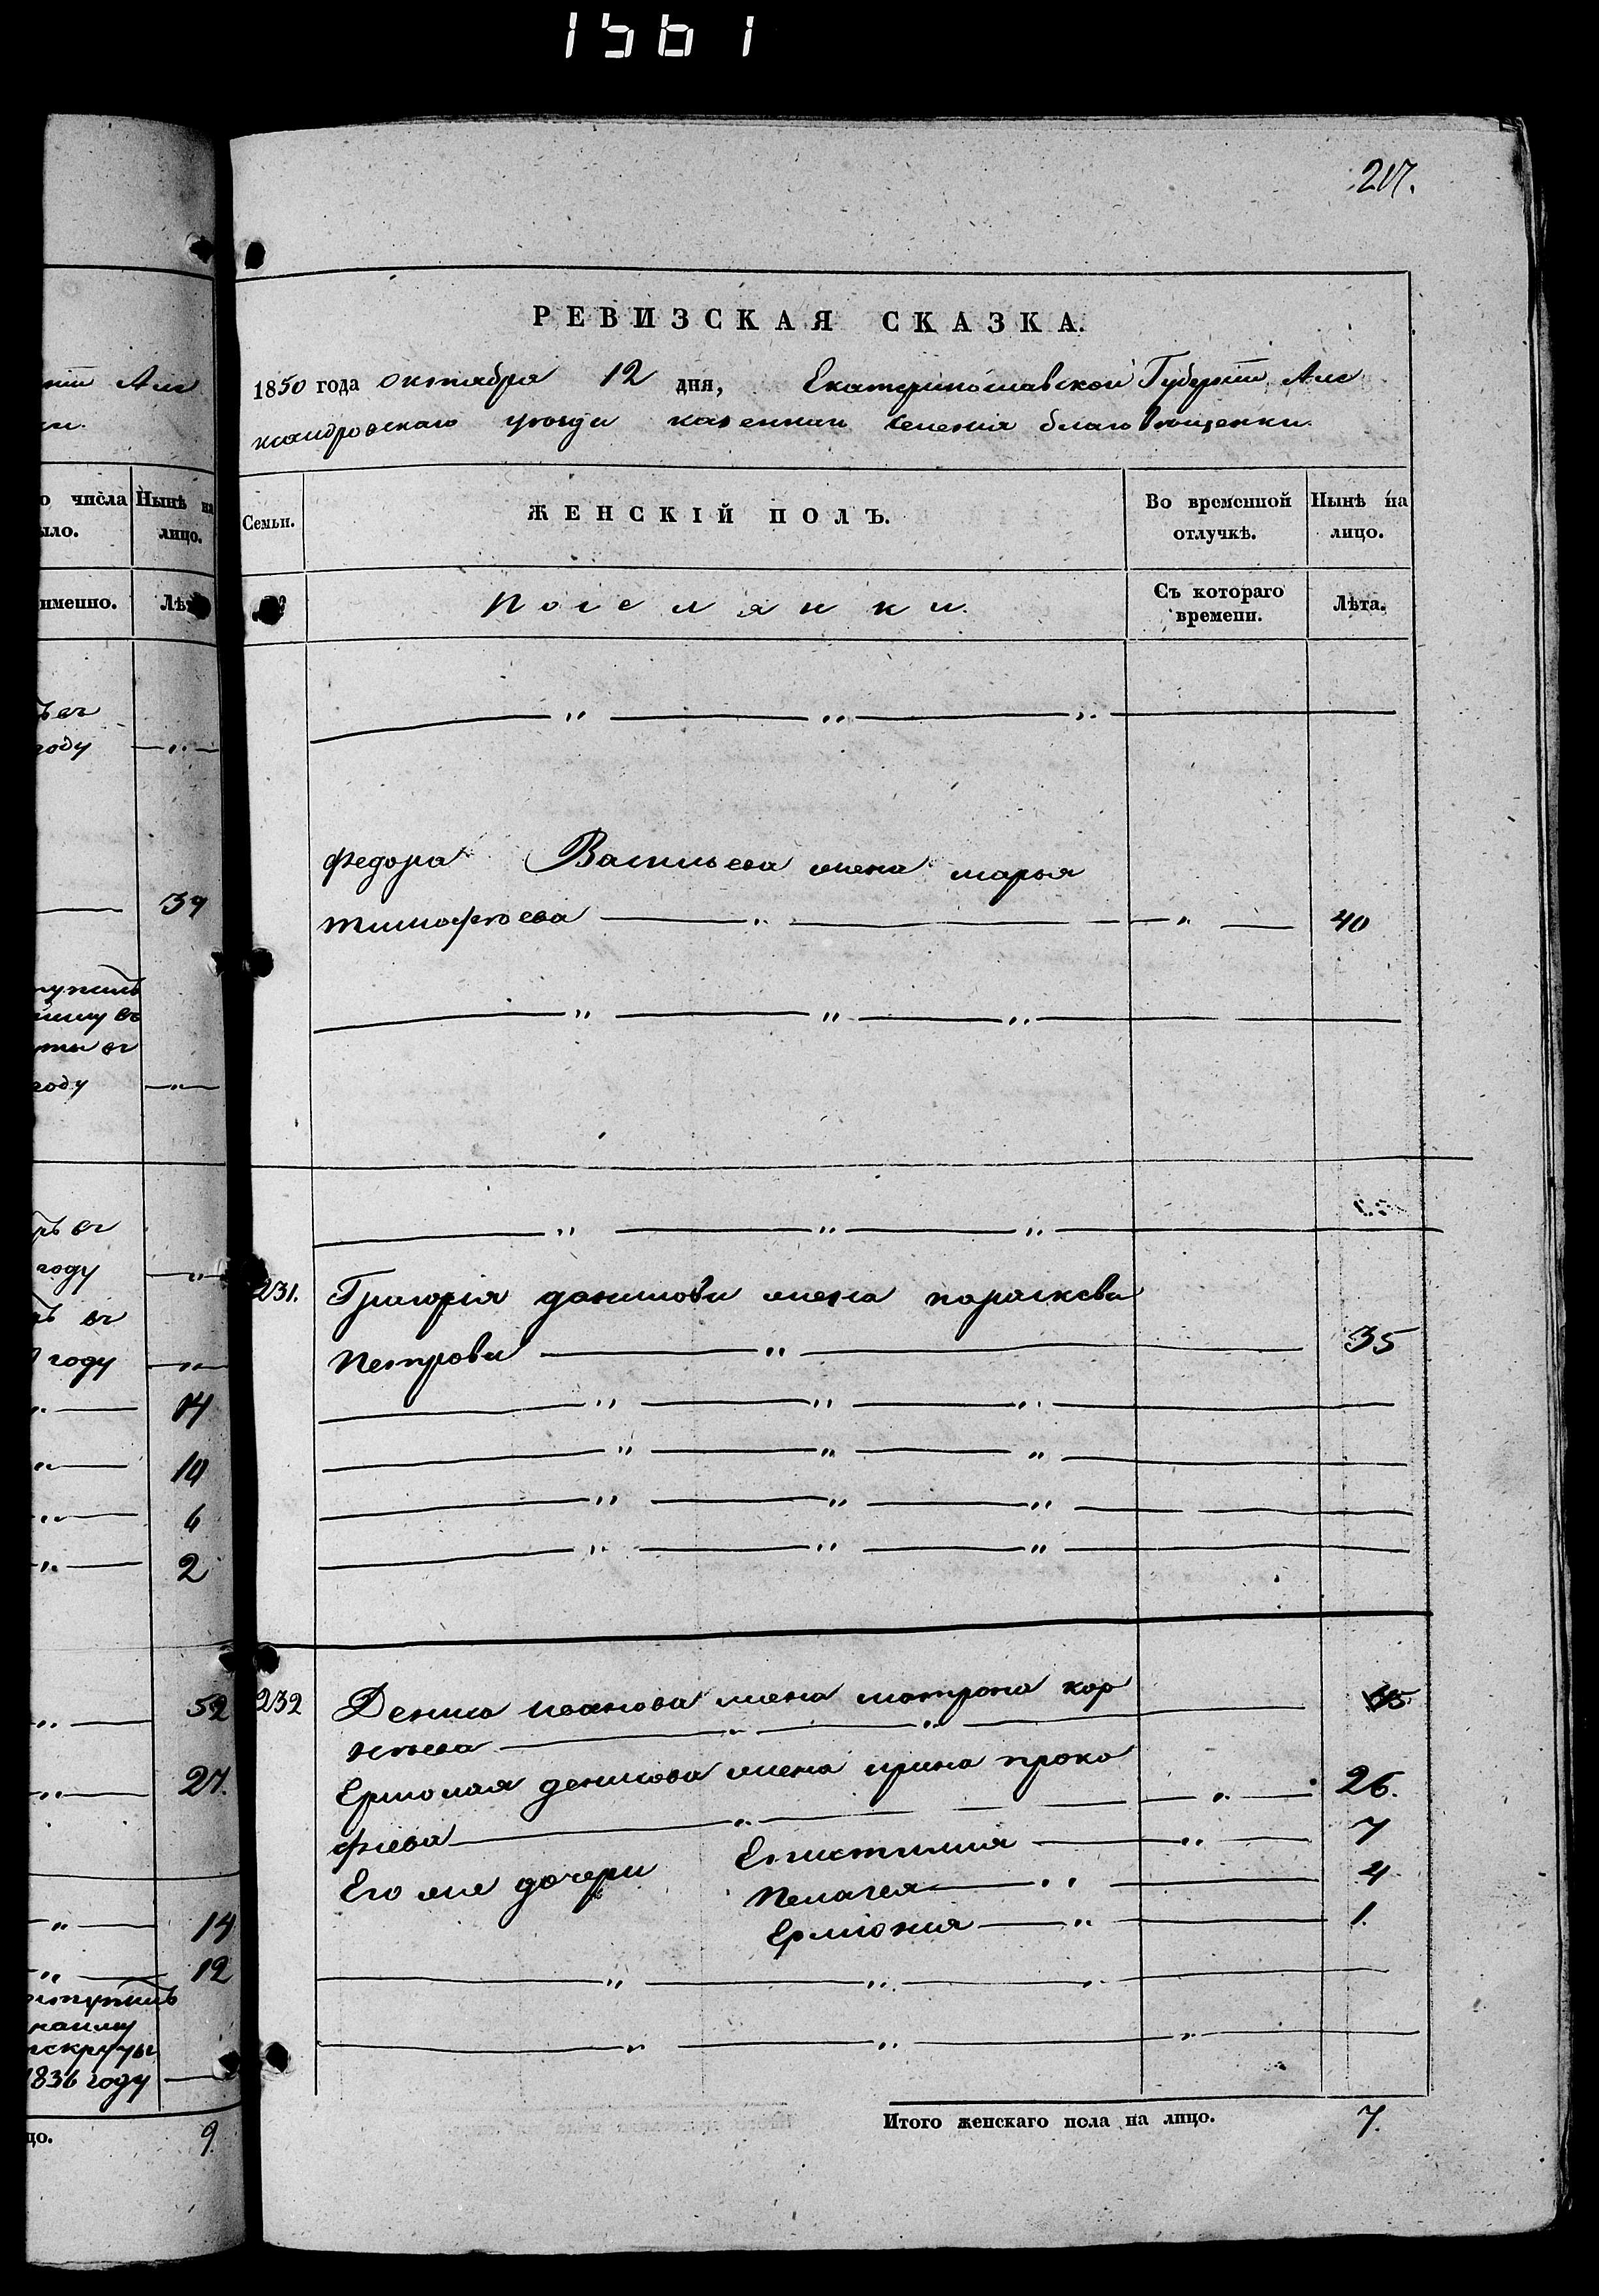 1561
217.
РЕВИЗСКАЯ СКАЗКА.
1850 года октября 12 дня, Екатеринославской Губерніи Алек
сандровскаго уезда казеннаго селенія благовещенки
Семьи.
ЖЕНСКІЙ ПОЛЪ.
Во временной отлучкѣ.
Нынѣ на лицо.
Поселянки.
Съ котораго времени.
Лѣта.
Федора Васильева жена марья
тимофѣева 40
231. Григорія данилова жена параскева
Петрова 35
232 Дениса иванова жена матрона кор
нѣева
Ермолая денисова жена ирина проко 26.
фіева
Его же дочери Епистимия 7
Пелагея 4
Ерміонія 1.
Итого женскаго пола на лицо. 7.
числа
Нынѣ на
ыло.
лицо.
именно.
въ
году
39
въ
году
въ
году
14
10
6
2
52
27.
14
12
найму
1836 году
цо.
9